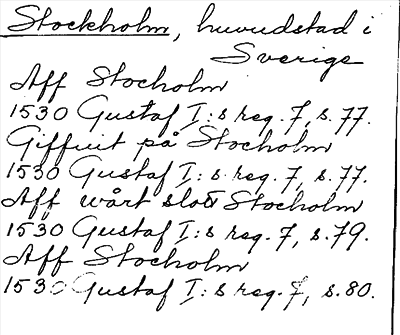 Stockholm, huvudstad i
Sverige
Aff Stocholm
1530 Gustaf I:s reg. 7, s. 77.
Giffuit på Stocholm
1530 Gustaf I:s reg. 7, s. 77.
Aff wårt slott Stocholm
1530 Gustaf I:s reg. 7, s. 79.
Aff Stocholm
1530 Gustaf I:s reg. 7, s. 80.